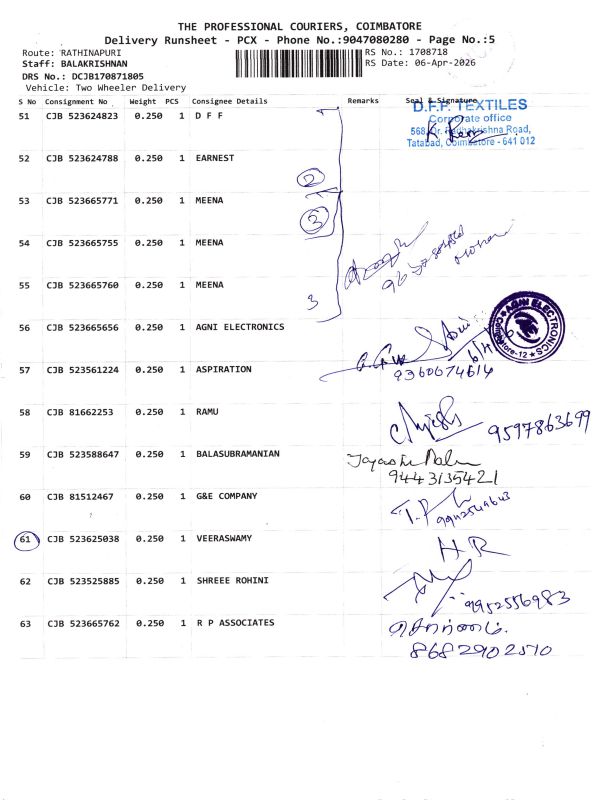 THE PROFESSIONAL COURIERS, COIMBATORE
Delivery Runsheet - PCX - Phone No.:9047080280 - Page No.:5
Route: RATHINAPURI
RS No.: 1708718
Staff: BALAKRISHNAN
RS Date: 06-Apr-2026
DRS No.: DCJB170871805
Vehicle: Two Wheeler Delivery
S No Consignment No Weight PCS Consignee Details Remarks Seal & Signature
51 CJB 523624823 0.250 1 D F F
D.F.F. TEXTILES
Corporate office
568, Dr. Radhakrishna Road,
Tatabad, Coimbatore - 641 012
52 CJB 523624788 0.250 1 EARNEST
2
53 CJB 523665771 0.250 1 MEENA
3
54 CJB 523665755 0.250 1 MEENA
55 CJB 523665760 0.250 1 MEENA
3
56 CJB 523665656 0.250 1 AGNI ELECTRONICS
AGNI ELECTRONICS
Coimbatore-12
57 CJB 523561224 0.250 1 ASPIRATION
9360674614
58 CJB 81662253 0.250 1 RAMU
9597863699
59 CJB 523588647 0.250 1 BALASUBRAMANIAN
9443135421
60 CJB 81512467 0.250 1 G&E COMPANY
61 CJB 523625038 0.250 1 VEERASWAMY
H R
62 CJB 523525885 0.250 1 SHREEE ROHINI
9952556983
63 CJB 523665762 0.250 1 R P ASSOCIATES
8682902510